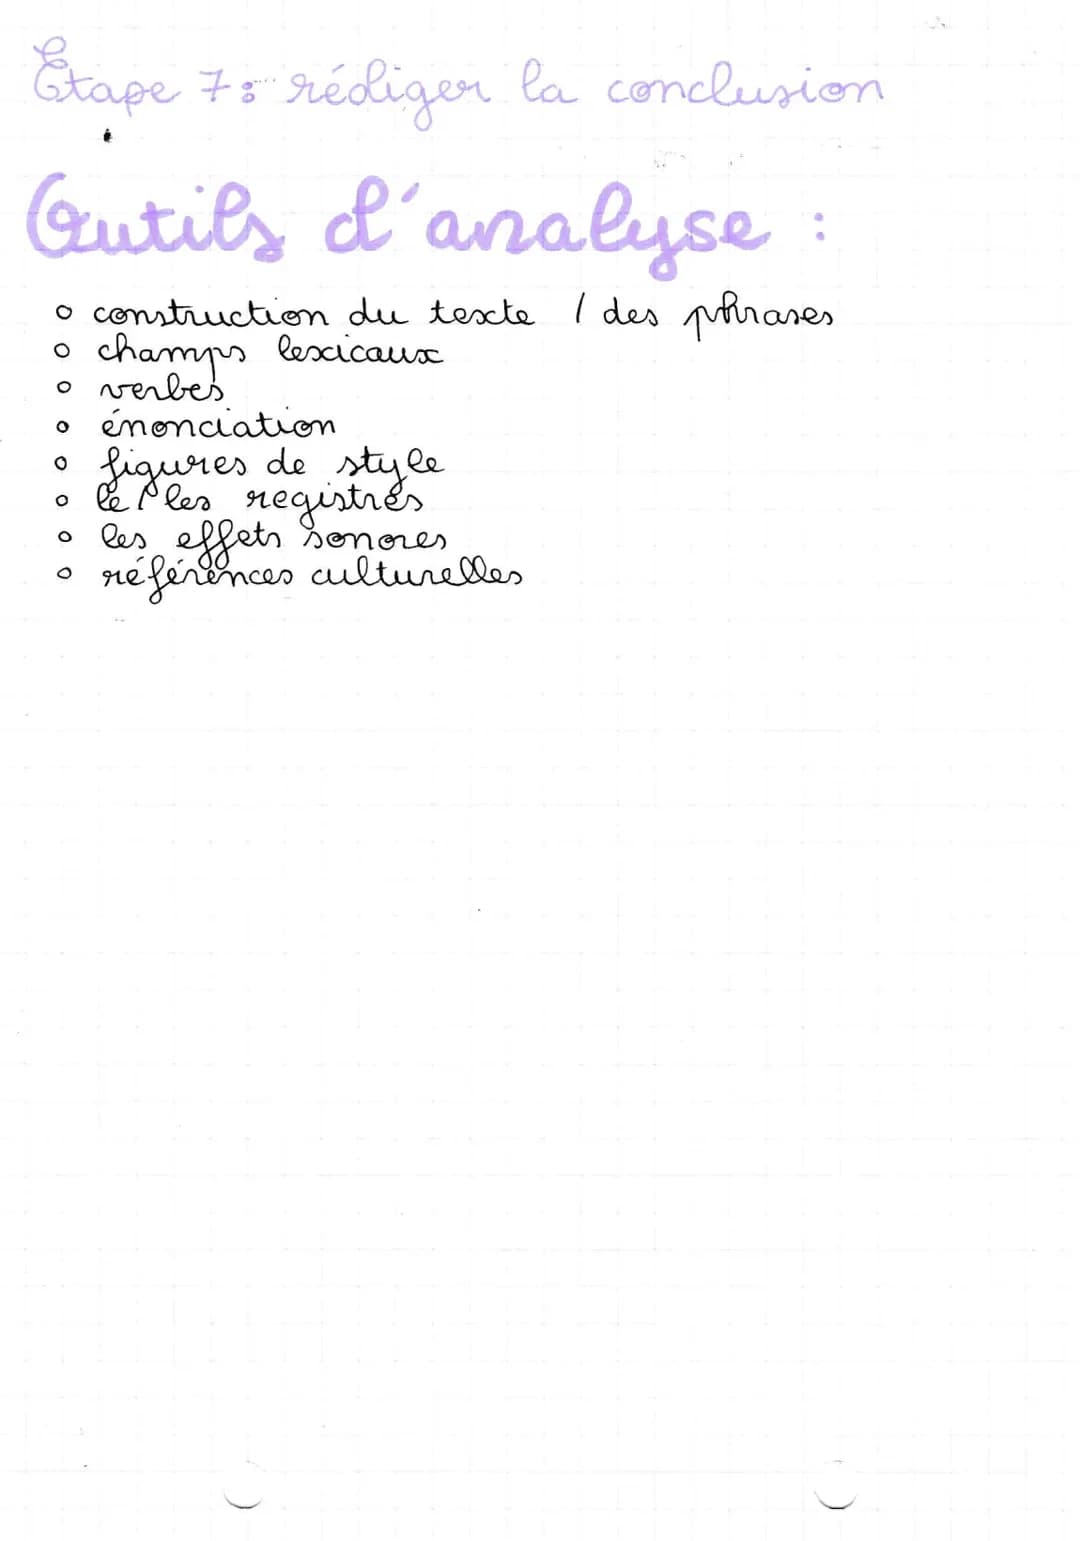 Étape 7: rédiger la conclusion
Outils d'analyse :
o construction du texte / des phrases
o champs lexicaux
o verbes
o énonciation
o figures de style
o le / les registres
o les effets sonores
o références culturelles